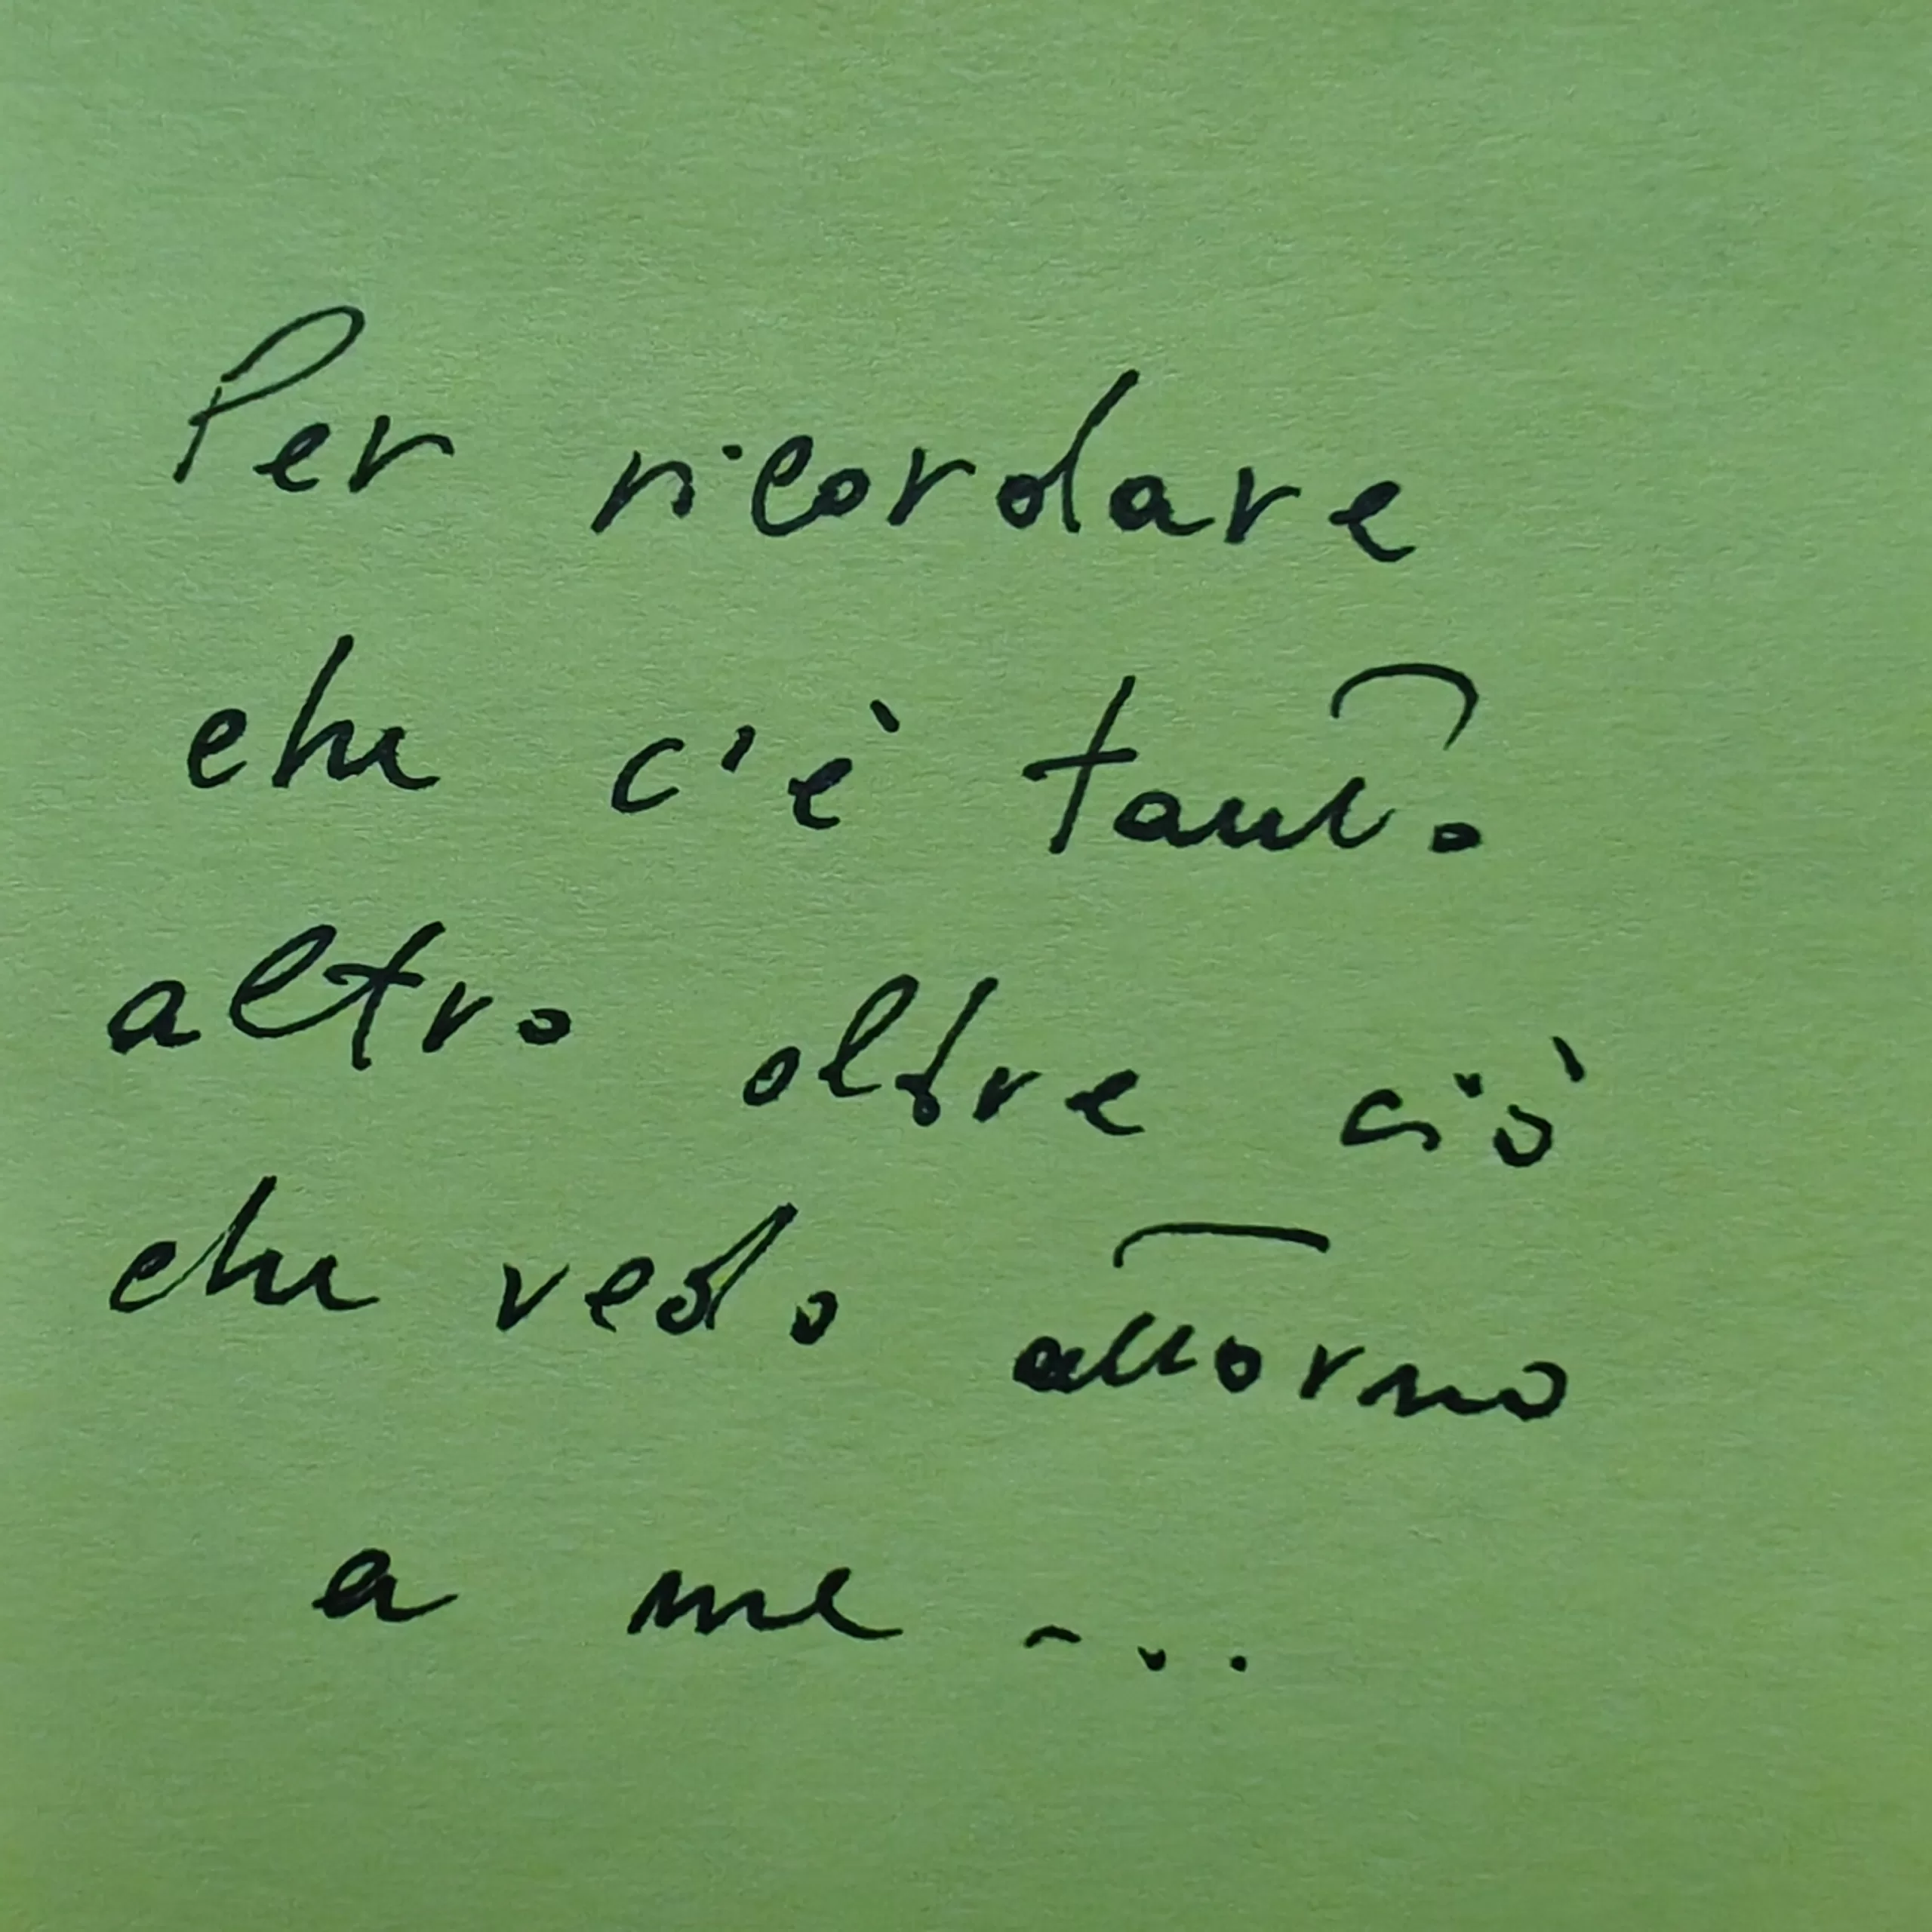 Per ricordare
che c'è tanto
altro oltre ciò
che vedo attorno
a me ...